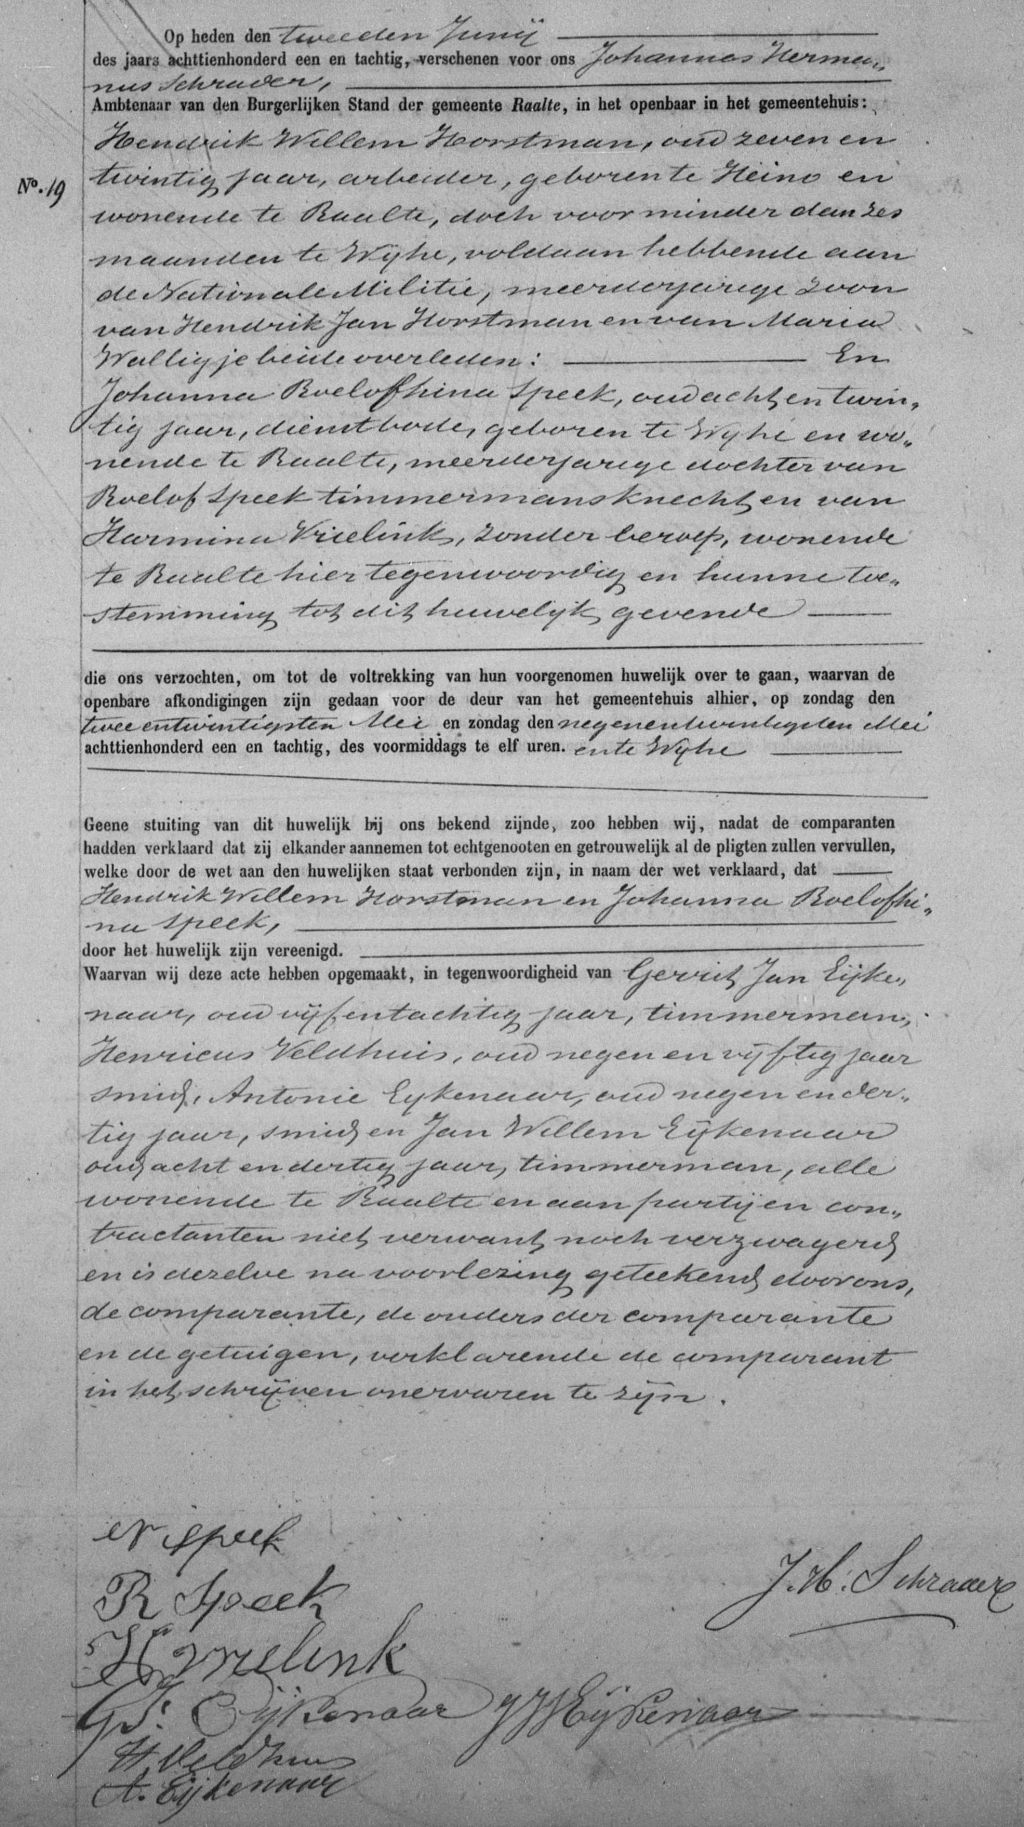 Op heden den tweeden Junij
des jaars achttienhonderd een en tachtig, verschenen voor ons Johannes Herma„
nus Schrader,
Ambtenaar van den Burgerlijken Stand der gemeente Raalte, in het openbaar in het gemeentehuis:
Hendrik Willem Horstman, oud zeven en
No. 19 twintig jaar, arbeider, geboren te Heino en
wonende te Raalte, doch voor minder dan zes
maanden te Wijhe, voldaan hebbende aan
de Nationale Militie, meerderjarige zoon
van Hendrik Jan Horstman en van Maria
Walligje beide overleden: En
Johanna Roelofhina Speek, oud acht en twin„
tig jaar, dienstbode, geboren te Wijhe en wo„
nende te Raalte, meerderjarige dochter van
Roelof Speek timmermansknecht en van
Harmina Vrielink, zonder beroep, wonende
te Raalte hier tegenwoordig en hunne toe„
stemming tot dit huwelijk gevende
die ons verzochten, om tot de voltrekking van hun voorgenomen huwelijk over te gaan, waarvan de
openbare afkondigingen zijn gedaan voor de deur van het gemeentehuis alhier, op zondag den
twee en twintigsten Mei en zondag den negenentwintigsten Mei
achttienhonderd een en tachtig, des voormiddags te elf uren. en te Wijhe
Geene stuiting van dit huwelijk bij ons bekend zijnde, zoo hebben wij, nadat de comparanten
hadden verklaard dat zij elkander aannemen tot echtgenooten en getrouwelijk al de pligten zullen vervullen,
welke door de wet aan den huwelijken staat verbonden zijn, in naam der wet verklaard, dat
Hendrik Willem Horstman en Johanna Roelofhi„
na Speek,
door het huwelijk zijn vereenigd.
Waarvan wij deze acte hebben opgemaakt, in tegenwoordigheid van Gerrit Jan Eijke„
naar, oud vijf en tachtig jaar, timmerman,
Henricus Veldhuis, oud negen en vijftig jaar
smid, Antonie Eijkenaar, oud negen en der„
tig jaar, smid en Jan Willem Eijkenaar
oud acht en dertig jaar, timmerman, alle
wonende te Raalte en aan partijen con„
tractanten niet verwant noch verzwagerd
en is dezelve na voorlezing geteekend door ons,
de comparante, de ouders der comparante
en de getuigen, verklarende de comparant
in het schrijven onervaren te zijn.
Speek
R Speek
J. H. Schrader
H Vrielink
G J. Eijkenaar J W Eijkenaar
H Veldhuis
A. Eijkenaar